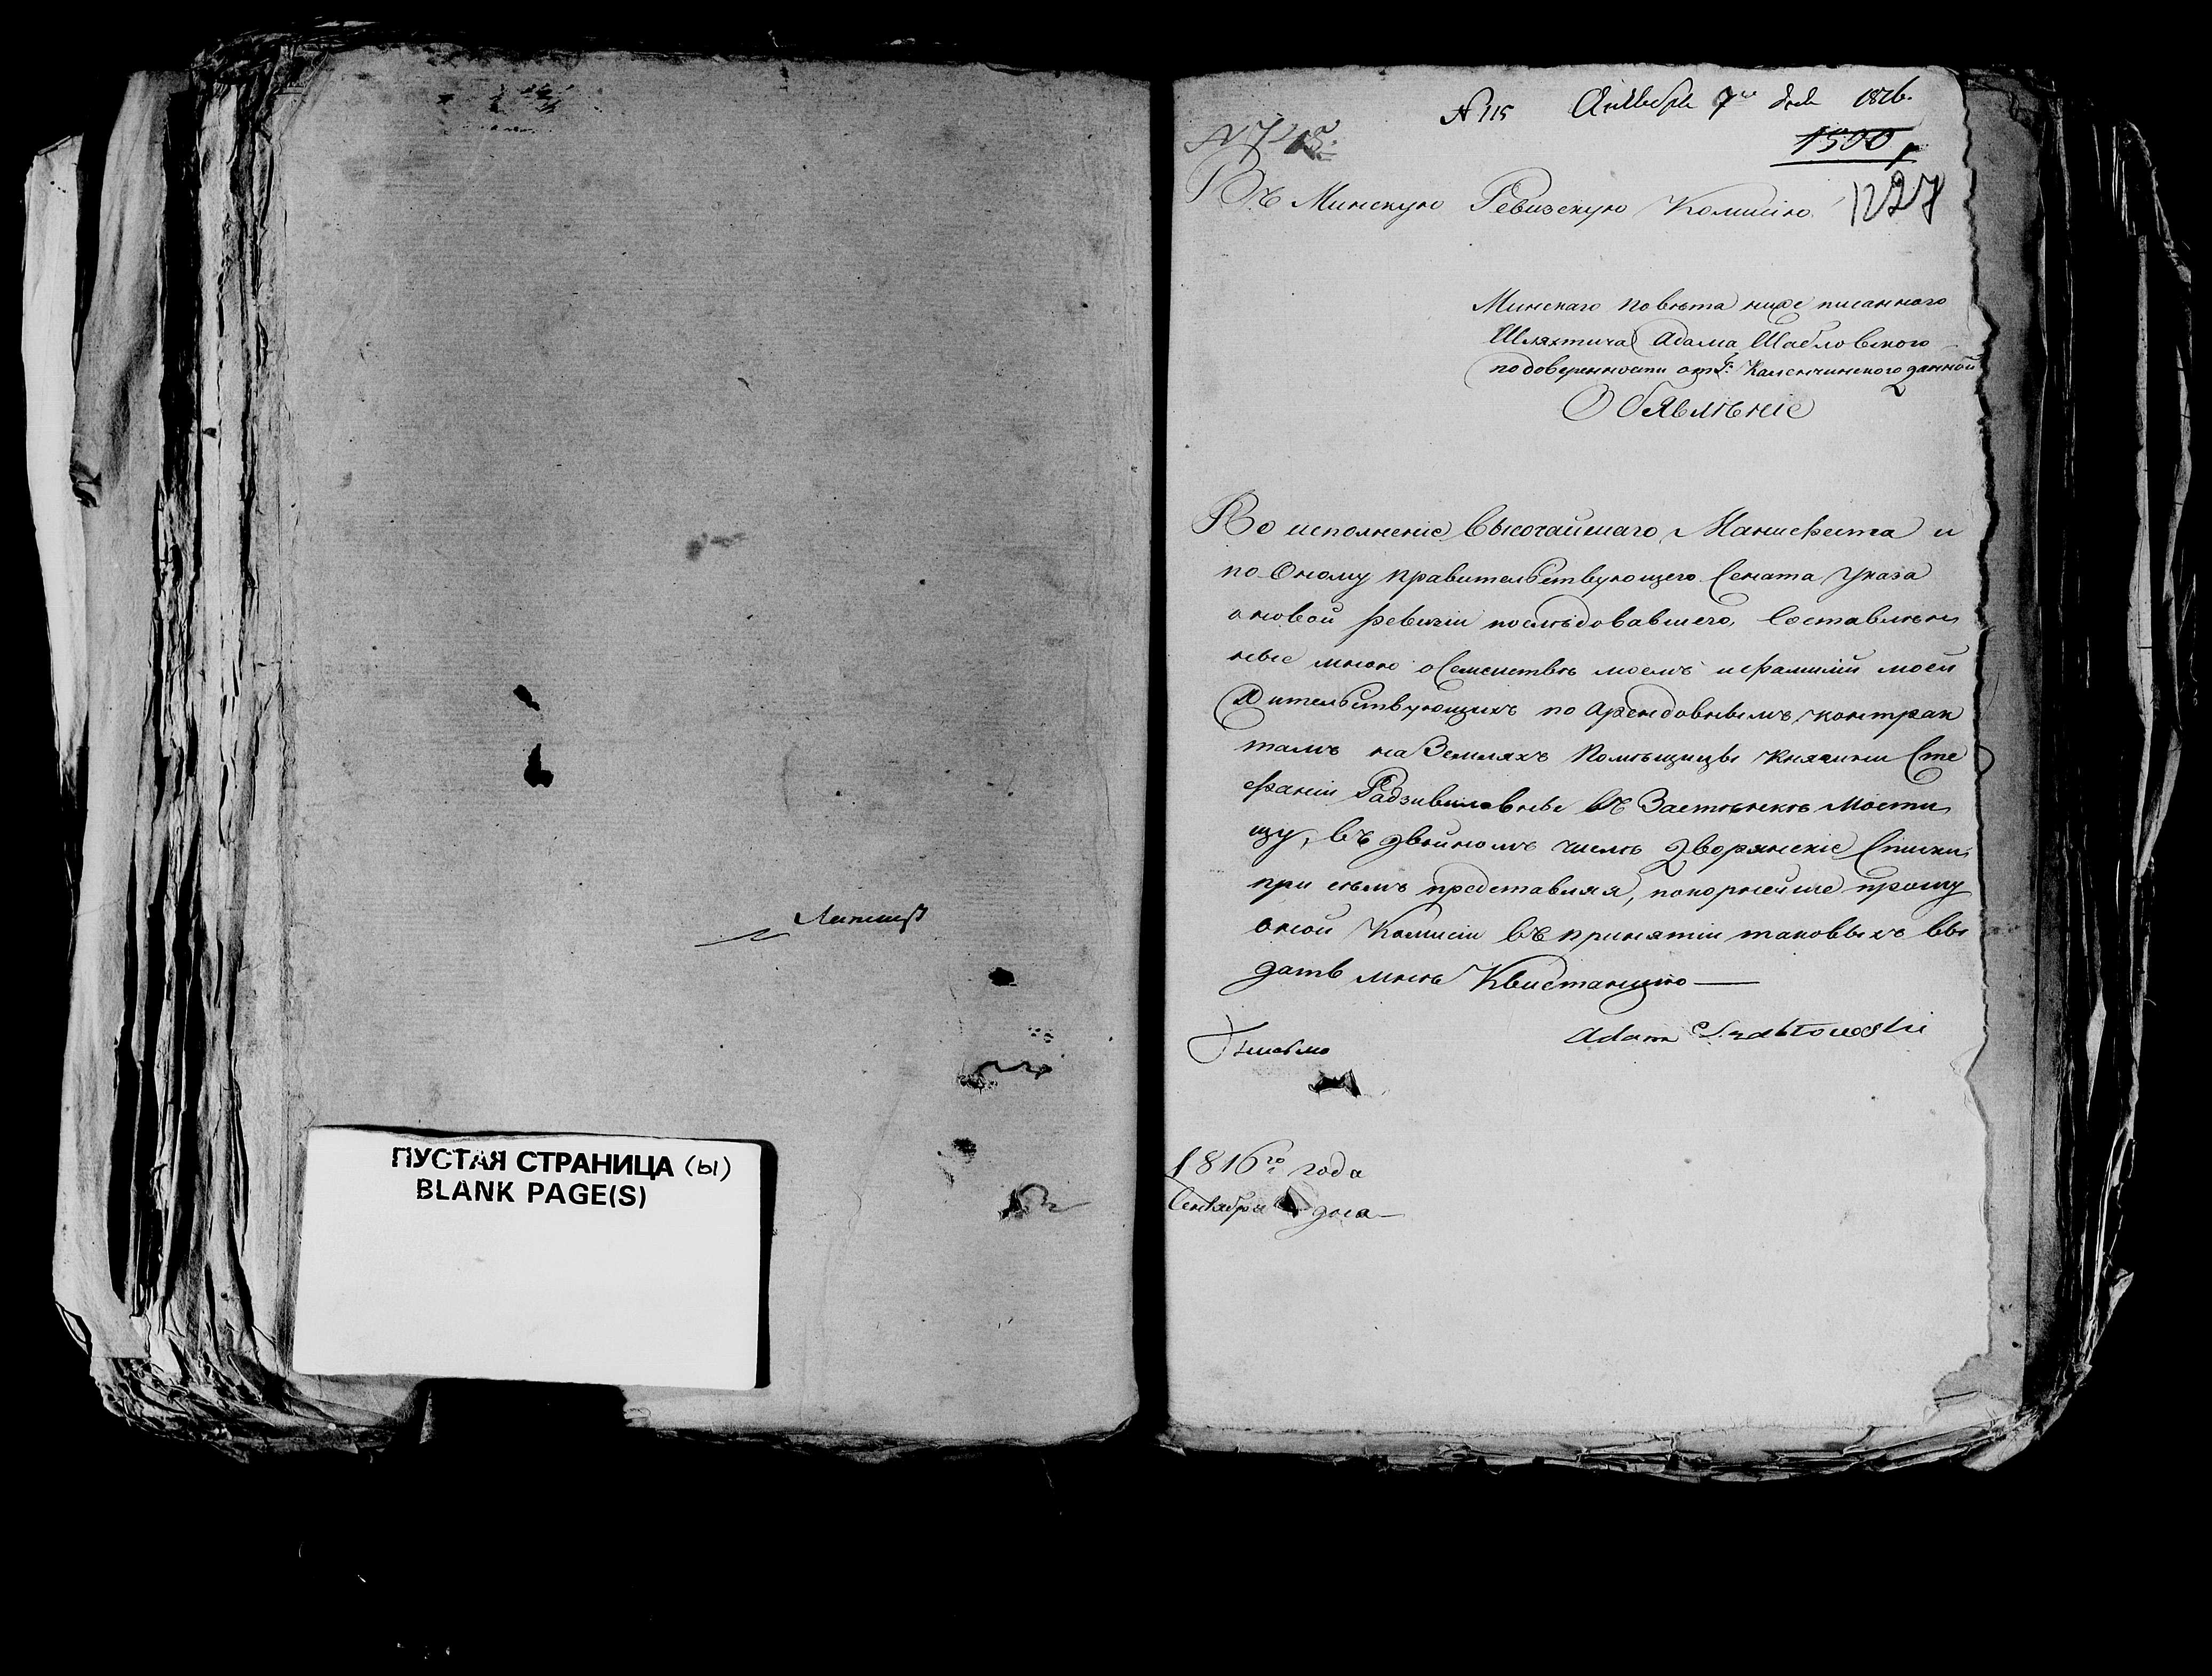 ПУСТАЯ СТРАНИЦА (ы)
BLANK PAGE(S)
№ 115 7го дня 1816.
1500
1227
Въ Минскую Ревизскую Комисію
Минскаго повѣта ниже писанного
Шляхтича Адама Шабловского
по доверенности от Г: Каленчинского данной
Обявлѣніе
Во исполненіе высочайшаго Манифеста и
по Оному правительствующего Сената указа
о новой ревизіи послѣдовавшего, Составлѣн
ные мною о Семействѣ моемъ и фамилій моей
Жительствующихъ по арендовнымъ контрак
тамъ на Земляхъ Помѣщицы Княгини Сте
фаніи Радзивиловны въ Застѣнкѣ Мости
щу, въ двойномъ числѣ дворянскіе Списки
при семъ представляя, покорнейше прошу
оной Комисіи въ принятіи таковыхъ вы
дать мнѣ Квистанцію —
Adam Szabłowski
1816го года
Сентября дня —